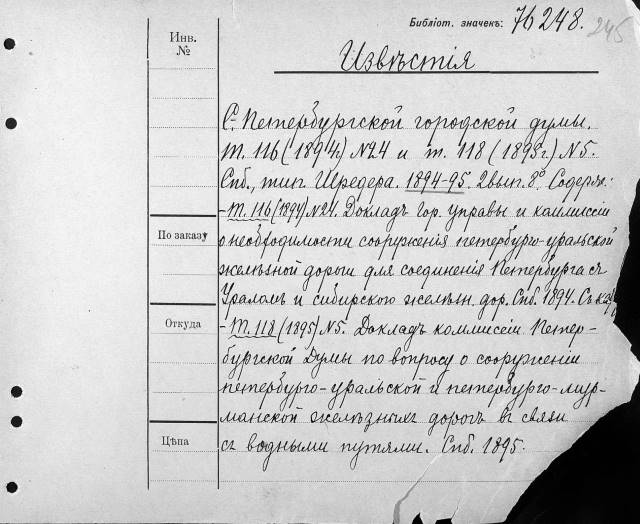 Библіот. значекъ: 76248. 245
Инв.
№
Извѣстія
С.-Петербургской городской думы.
Т. 116 (1894г.) № 24 и т. 118 (1895г.) № 5.
Спб., тип. Шредера. 1894-95. 2 вып. 8° Содерж.:
-Т. 116 (1894) № 24. Докладъ гор. управы и коммиссіи
По заказу
о необходимости сооруженія петербурго-уральской
желѣзной дороги для соединенія Петербурга съ
Ураломъ и сибирского желѣзн. дор. Спб. 1894. Съ
Откуда
-Т. 118 (1895) № 5. Докладъ коммиссіи Петер-
бургской Думы по вопросу о сооруженіи
петербурго-уральской и петербурго-мур-
манской желѣзныхъ дорогъ въ связи
Цѣна
съ водными путями. Спб. 1895.